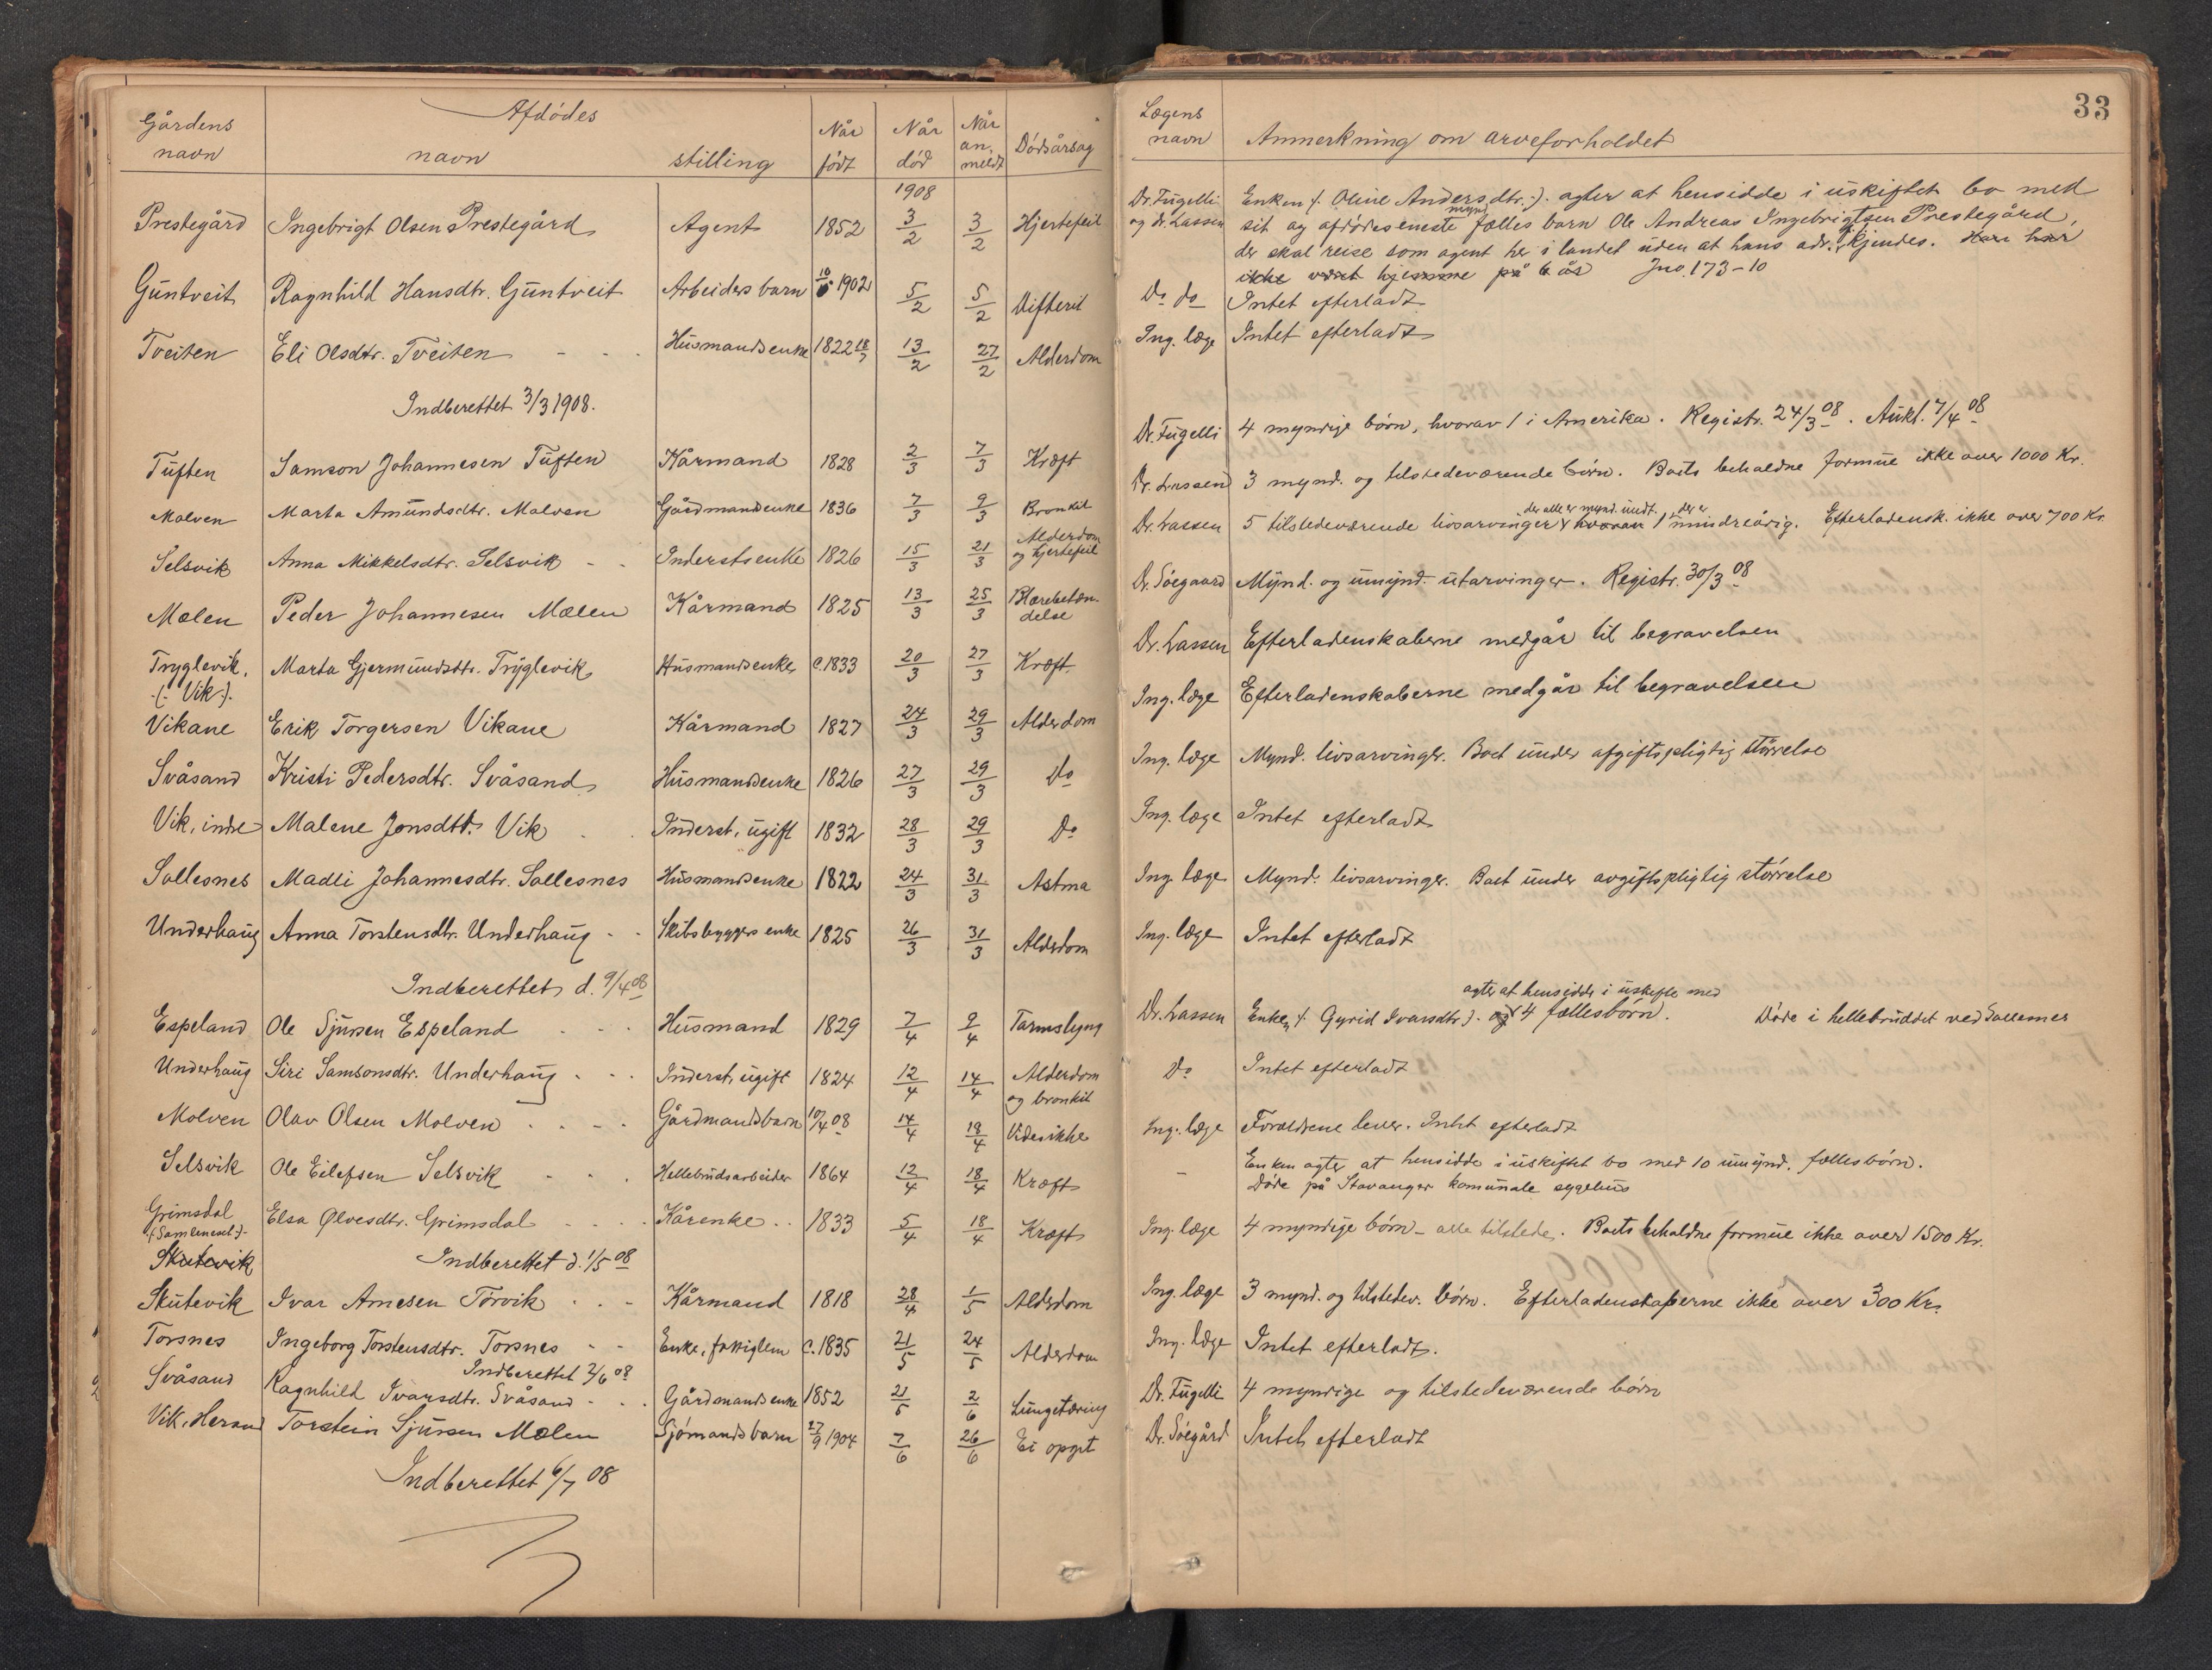 33
Gårdens navn | Afdødes navn | stilling | Når født | Når død | Når an. meldt | Dødsårsag | Lægens navn | Anmerkning om arveforholdet
1908
Prestegård | Ingebrigt Olsen Prestegård | Agent | 1852 | 3/2 | 3/2 | Hjertefeil | Dr. Fugelli og dr. Lassen | Enken (: Oline Andersdtr. :) agter at hensidde i uskiftet bo med
sit og afdødes eneste mynd. fælles barn Ole Andreas Ingebrigtsen Prestegård,
der skal reise som agent her i landet uden at hans adr. kjendes. Han har
ikke været hjemme på 6 år Jno. 173-10
Guntveit | Ragnhild Hansdtr. Guntveit | Arbeidersbarn | 1902 | 5/2 | 5/2 | Difterit | Do do | Intet efterladt
Tveiten | Eli Olsdtr. Tveiten | Husmandsenke | 1822 18/7 | 13/2 | 27/2 | Alderdom | Ing. læge | Intet efterladt
Indberettet 3/3 1908.
Tuften | Samson Johannesen Tuften | Kårmand | 1828 | 2/3 | 7/3 | Kræft | Dr. Fugelli | 4 myndige børn, hvorav 1 i Amerika. Registr. 24/3 08. Aukt. 7/4 08
Molven | Marta Amundsdtr. Molven | Gårdmandsenke | 1836 | 7/3 | 9/3 | Bronkit | Dr. Lassen | 3 mynd. og tilstedeværende børn. Boets beholdne formue ikke over 1000 Kr.
Selsvik | Anna Mikkelsdtr. Selsvik | Inderstsenke | 1826 | 15/3 | 21/3 | Alderdom og hjertefeil | Dr. Lassen | 5 tilstedeværende livsarvinger der alle er mynd. undt. hvorav 1 der er mindreårig. Efterladensk. ikke over 700 Kr.
Mælen | Peder Johannesen Mælen | Kårmand | 1825 | 13/3 | 25/3 | Blærebetændelse | Dr. Søegaard | Mynd. og umynd. utarvinger. Registr. 30/3 08
Tryglevik. (: Vik :) | Marta Gjermundsdtr. Tryglevik | Husmandsenke | C. 1833 | 20/3 | 27/3 | Kræft | Dr. Lassen | Efterladenskaberne medgår til begravelsen
Vikane | Erik Torgersen Vikane | Kårmand | 1827 | 24/3 | 29/3 | Alderdom | Ing. læge | Efterladenskaberne medgår til begravelsen
Svåsand | Kristi Pedersdtr. Svåsand | Husmandsenke | 1826 | 27/3 | 29/3 | Do | Ing. læge | Mynd. livsarvinger. Boet under afgiftspligtig størrelse
Vik, indre | Malene Jonsdtr. Vik | Inderst, ugift | 1832 | 28/3 | 29/3 | Do | Ing. læge | Intet efterladt
Sollesnes | Madli Johannesdtr. Sollesnes | Husmandsenke | 1822 | 24/3 | 31/3 | Astma | Ing. læge | Mynd. livsarvinger. Boet under avgiftspligtig størrelse
Underhaug | Anna Torstensdtr. Underhaug | Skibsbyggers enke | 1825 | 26/3 | 31/3 | Alderdom | Ing. læge | Intet efterladt
Indberettet d. 9/4 08
Espeland | Ole Sjursen Espeland | Husmand | 1829 | 7/4 | 9/4 | Tarmslyng | Dr. Lassen | Enken (: Gyrid Ivarsdtr :) agter at hensidde i uskifte med og 4 fællesbørn. Døde i hellebruddet ved Sollesnes
Underhaug | Siri Samsonsdtr. Underhaug | Inderst, ugift | 1824 | 12/4 | 14/4 | Alderdom og bronkit | Do | Intet efterladt
Molven | Olav Olsen Molven | Gårdmandsbarn | 10/4 08 | 14/4 | 18/4 | Vides ikke | Ing. læge | Forældrene lever. Intet efterladt
Selsvik | Ole Eilefsen Selsvik | Hellebrudsarbeider | 1864 | 12/4 | 18/4 | Kræft | - | Enken agter at hensidde i uskiftet bo med 10 umynd. fællesbørn.
Døde på Stavanger komunale sygehus
Grimsdal | Elsa Ølvesdtr. Grimsdal | Kårenke | 1833 | 5/4 | 18/4 | Kræft | Ing. læge | 4 myndige børn - alle tilstede. Boets beholdne formue ikke over 1500 Kr.
Skutevik
Indberettet d. 1/5 08
Skutevik | Ivar Arnesen Torvik | Kårmand | 1818 | 28/4 | 1/5 | Alderdom | Ing. læge | 3 mynd. og tilstedev. børn. Efterladenskaberne ikke over 300 Kr.
Torsnes | Ingeborg Torstensdtr. Torsnes | Enke, fattiglem | C. 1835 | 21/5 | 24/5 | Alderdom | Ing. læge | Intet efterladt.
Indberettet 2/6 08
Svåsand | Ragnhild Ivarsdtr. Svåsand | Gårdmandsenke | 1852 | 21/5 | 2/6 | Lungetæring | Dr. Fugelli | 4 myndige og tilstedeværende børn
Vik, Herand | Torstein Sjursen Mælen | Sjømandsbarn | 27/9 1904 | 7/6 | 26/6 | Ei opgit | Dr. Søegård | Intet efterladt
Indberettet 6/7 08